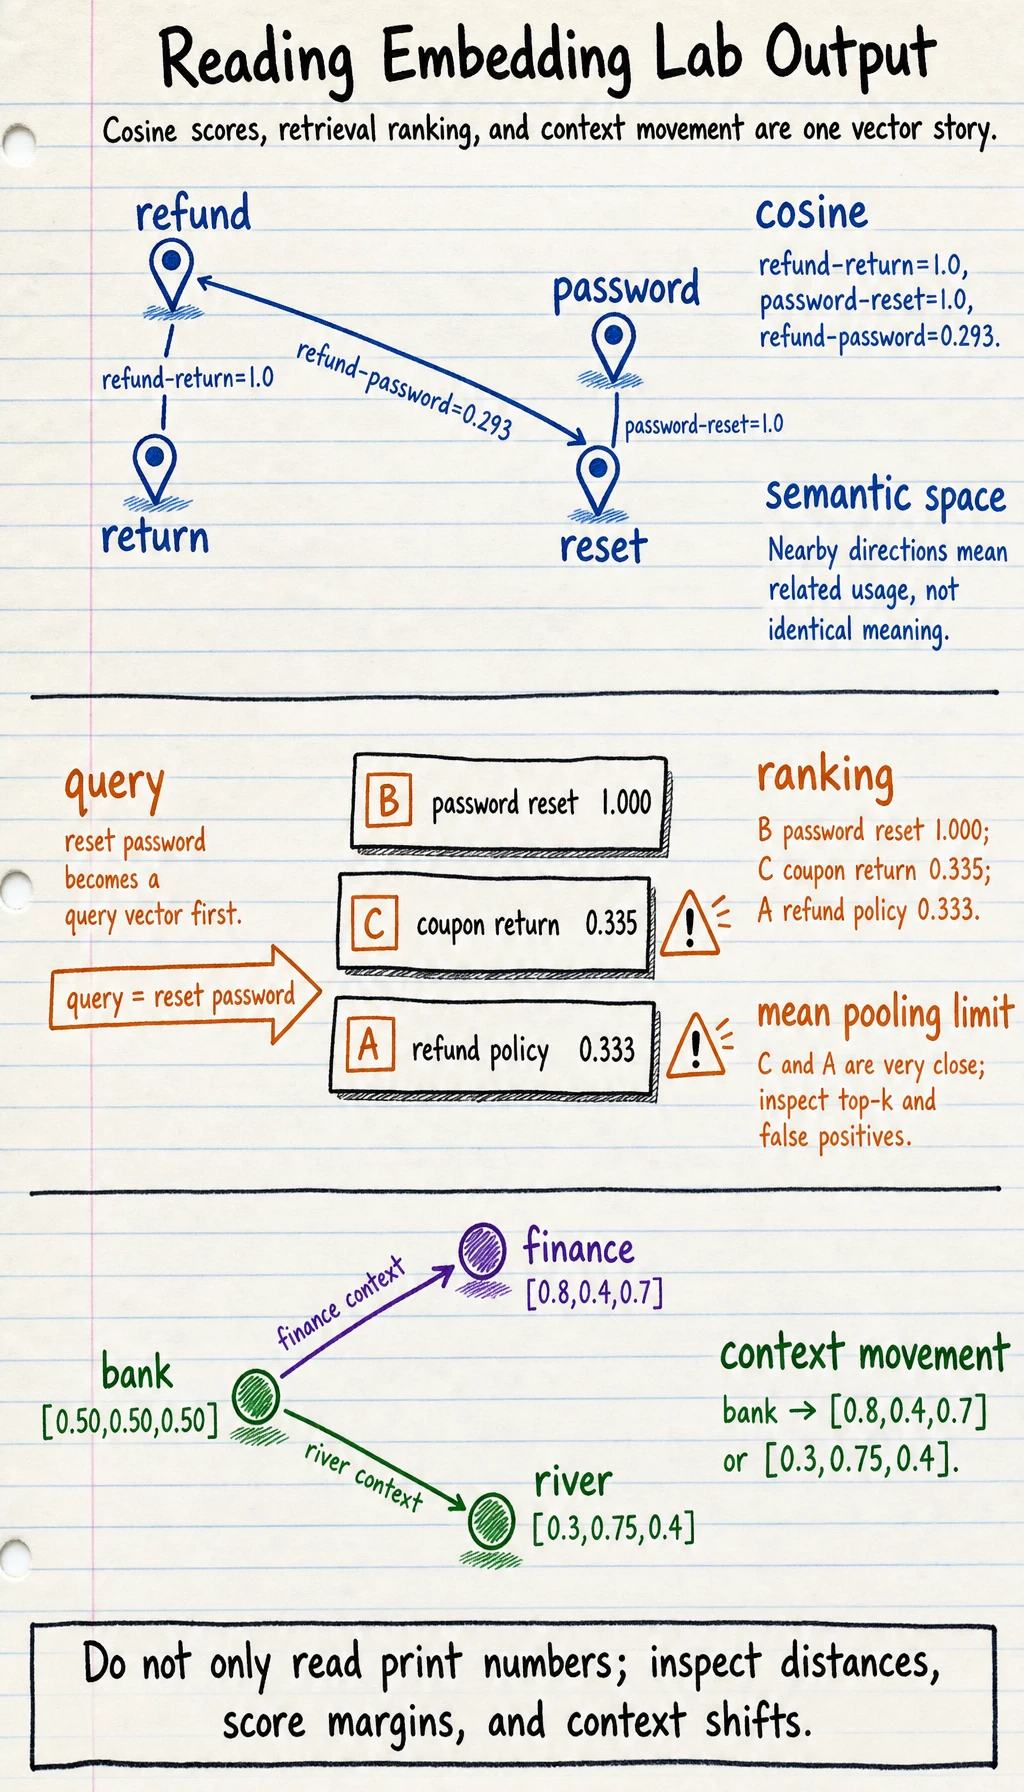 Reading Embedding Lab Output
Cosine scores, retrieval ranking, and context movement are one vector story.
refund
password
refund-return=1.0
refund-password=0.293
password-reset=1.0
return
reset
cosine
refund-return=1.0,
password-reset=1.0,
refund-password=0.293.
semantic space
Nearby directions mean
related usage, not
identical meaning.
query
reset password
becomes a
query vector first.
query = reset password
B password reset 1.000
C coupon return 0.335
!
A refund policy 0.333
!
ranking
B password reset 1.000;
C coupon return 0.335;
A refund policy 0.333.
mean pooling limit
C and A are very close;
inspect top-k and
false positives.
finance
[0.8,0.4,0.7]
finance context
bank
[0.50,0.50,0.50]
river context
river
[0.3,0.75,0.4]
context movement
bank → [0.8,0.4,0.7]
or [0.3,0.75,0.4].
Do not only read print numbers; inspect distances,
score margins, and context shifts.